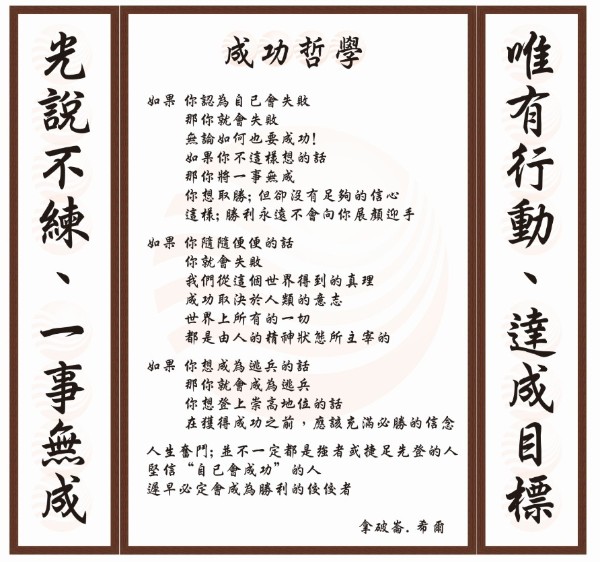 光說不練、一事無成
成功哲學
如果 你認為自己會失敗
那你就會失敗
無論如何也要成功!
如果你不這樣想的話
那你將一事無成
你想取勝; 但卻沒有足夠的信心
這樣; 勝利永遠不會向你展顏迎手
如果 你隨隨便便的話
你就會失敗
我們從這個世界得到的真理
成功取決於人類的意志
世界上所有的一切
都是由人的精神狀態所主宰的
如果 你想成為逃兵的話
那你就會成為逃兵
你想登上崇高地位的話
在獲得成功之前，應該充滿必勝的信念
人生奮鬥; 並不一定都是強者或捷足先登的人
堅信 “自己會成功” 的人
遲早必定會成為勝利的佼佼者
拿破崙. 希爾
唯有行動、達成目標